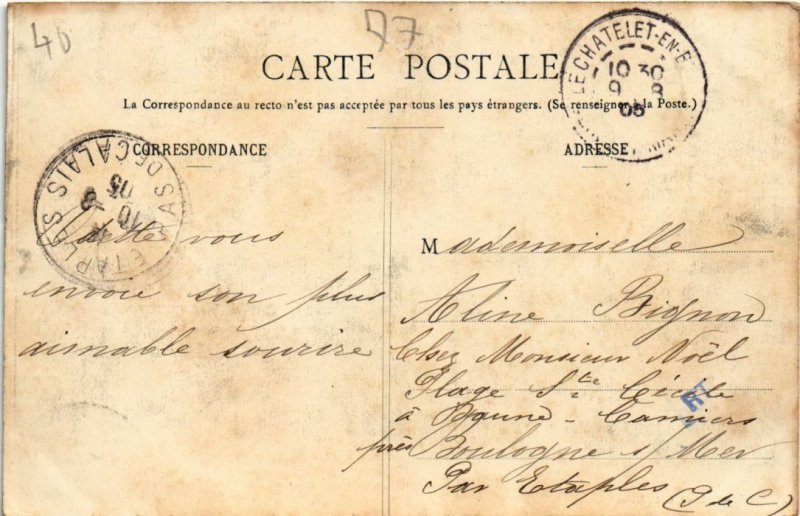 40
77
CARTE POSTALE
La Correspondance au recto n'est pas acceptée par tous les pays étrangers. (Se renseigner à la Poste.)
LE CHATELET-EN-B
10 30
9 8
05
CORRESPONDANCE
ADRESSE
ETAPLES PAS DE CALAIS
10
8
05
vous
envoie son plus
aimable sourire
Mademoiselle
Aline Bignon
Chez Monsieur Noël
Plage Ste Cécile
à Camiers
près Boulogne s/ Mer
Par Etaples (P de C)